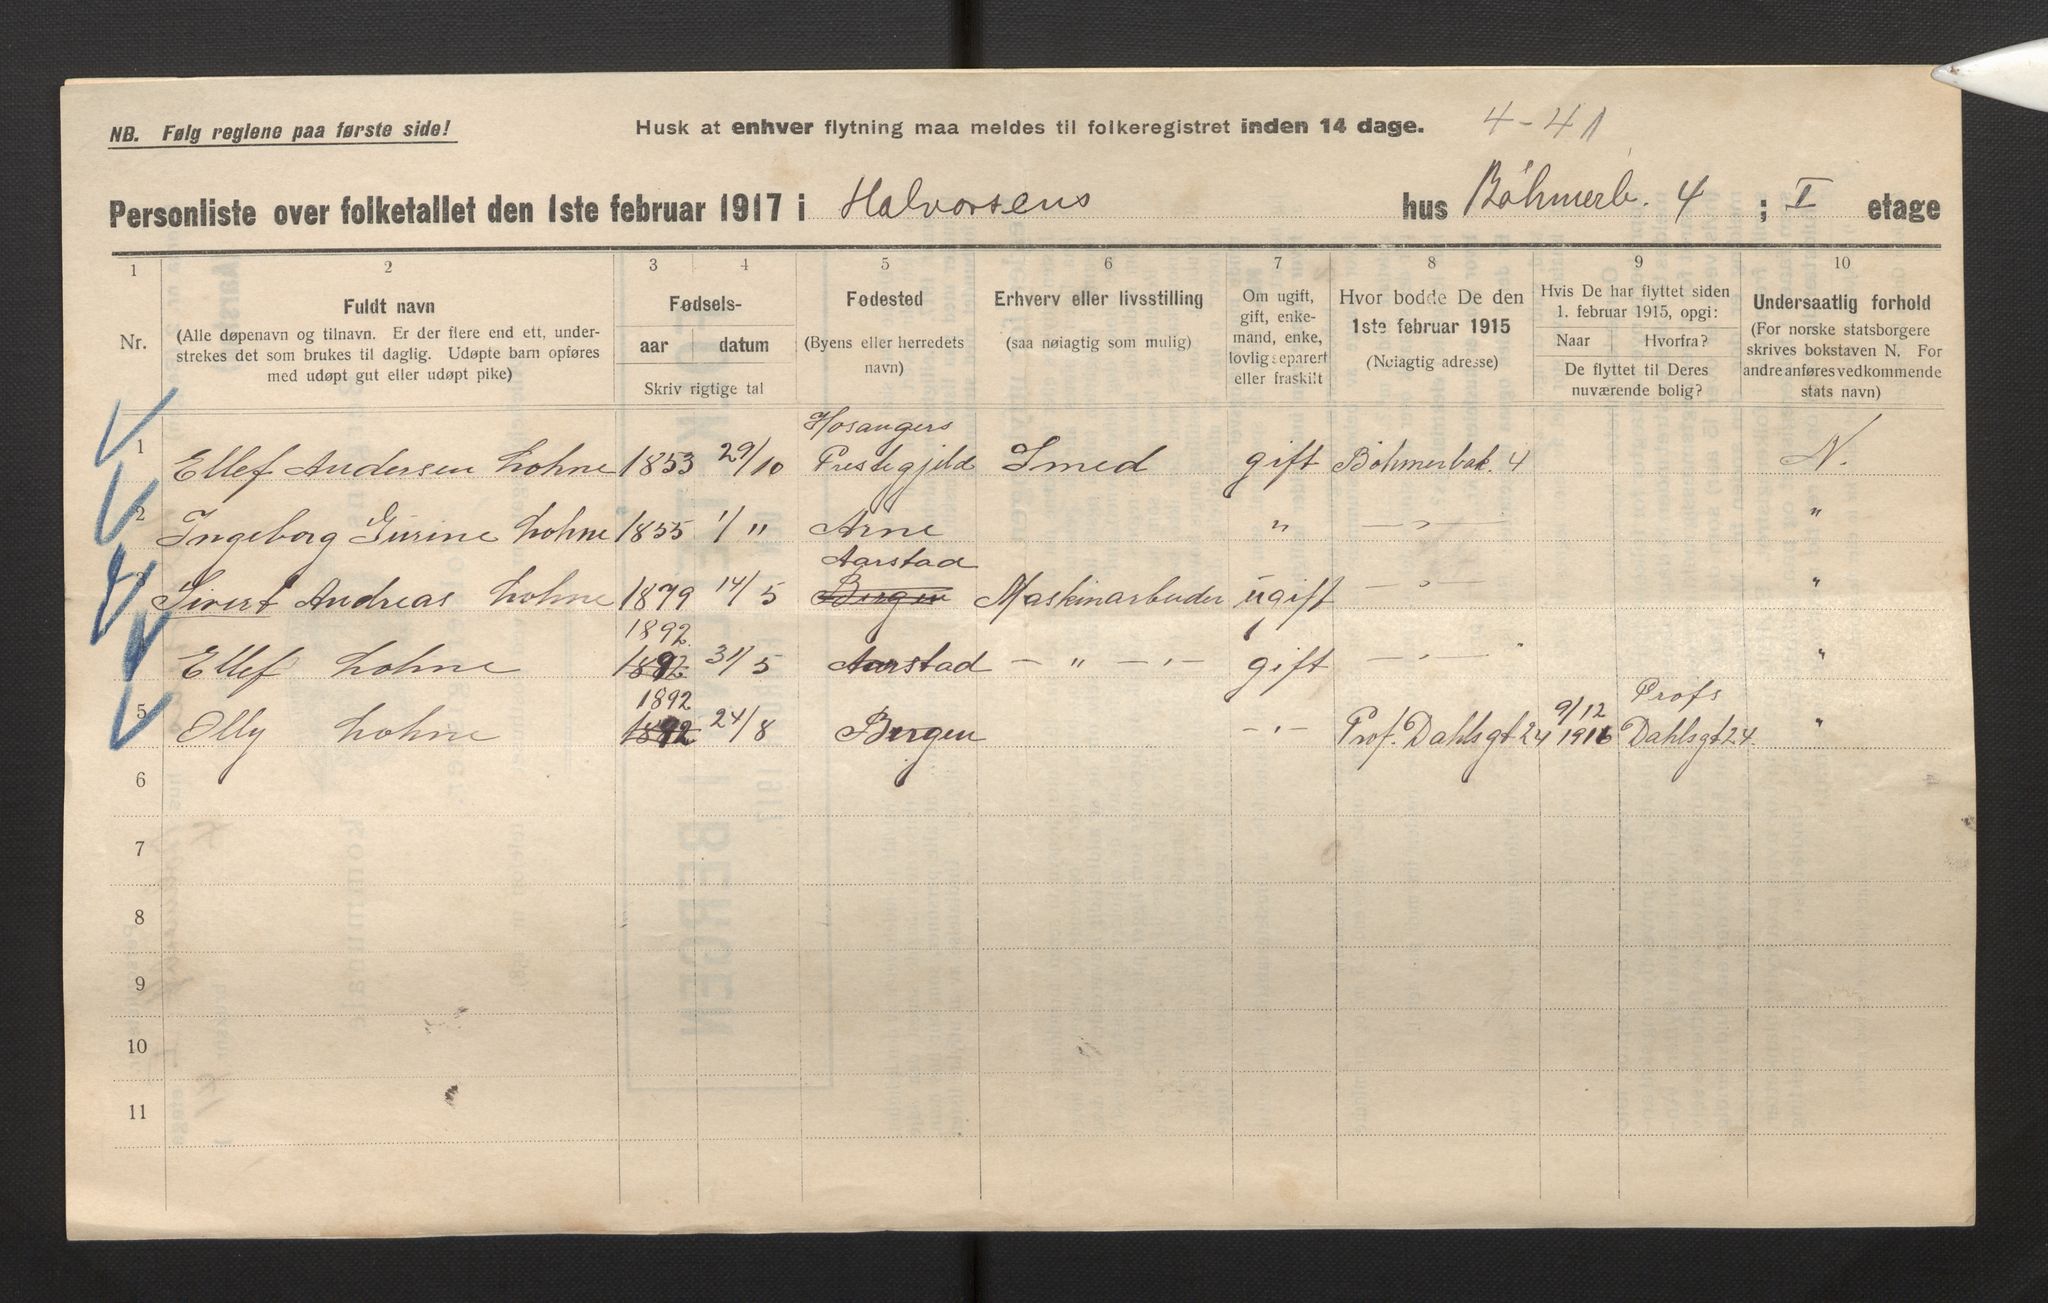 NB. Følg reglene paa første side!
Husk at enhver flytning maa meldes til folkeregistret inden 14 dage.
4-41
Personliste over folketallet den 1ste februar 1917 i Halvorsens hus Böhmerb. 4 ; I etage
1 2 3 4 5 6 7 8 9 10
Nr.
Fuldt navn
(Alle døpenavn og tilnavn. Er der flere end ett, under-
strekes det som brukes til daglig. Udøpte barn opføres
med udøpt gut eller udøpt pike)
Fødsels-
aar datum
Skriv rigtige tal
Fødested
(Byens eller herredets
navn)
Erhverv eller livsstilling
(saa nøiagtig som mulig)
Om ugift,
gift, enke-
mand, enke,
lovlig separert
eller fraskilt
Hvor bodde De den
1ste februar 1915
(Nøiagtig adresse)
Hvis De har flyttet siden
1. februar 1915, opgi:
Naar Hvorfra?
De flyttet til Deres
nuværende bolig?
Undersaatlig forhold
(For norske statsborgere
skrives bokstaven N. For
andre anføres vedkommende
stats navn)
Hosangers
1 Ellef Andersen Lohne 1853 29/10 Prestegjeld Smed gift Böhmerbak. 4 N.
2 Ingeborg Gurine Lohne 1855 1/" Arne " — " — "
Aarstad
Sivert Andreas Lohne 1879 14/5 Bergen Maskinarbeider ugift — " — "
1892
Ellef Lohne 1892 31/5 Aarstad — " — " — gift — " — "
1892 9/12 Profs
5 Olly Lohne 1892 24/8 Bergen — " — Prof. Dahlsgt 24 1916 Dahlsgt 24. "
6
7
8
9
10
11